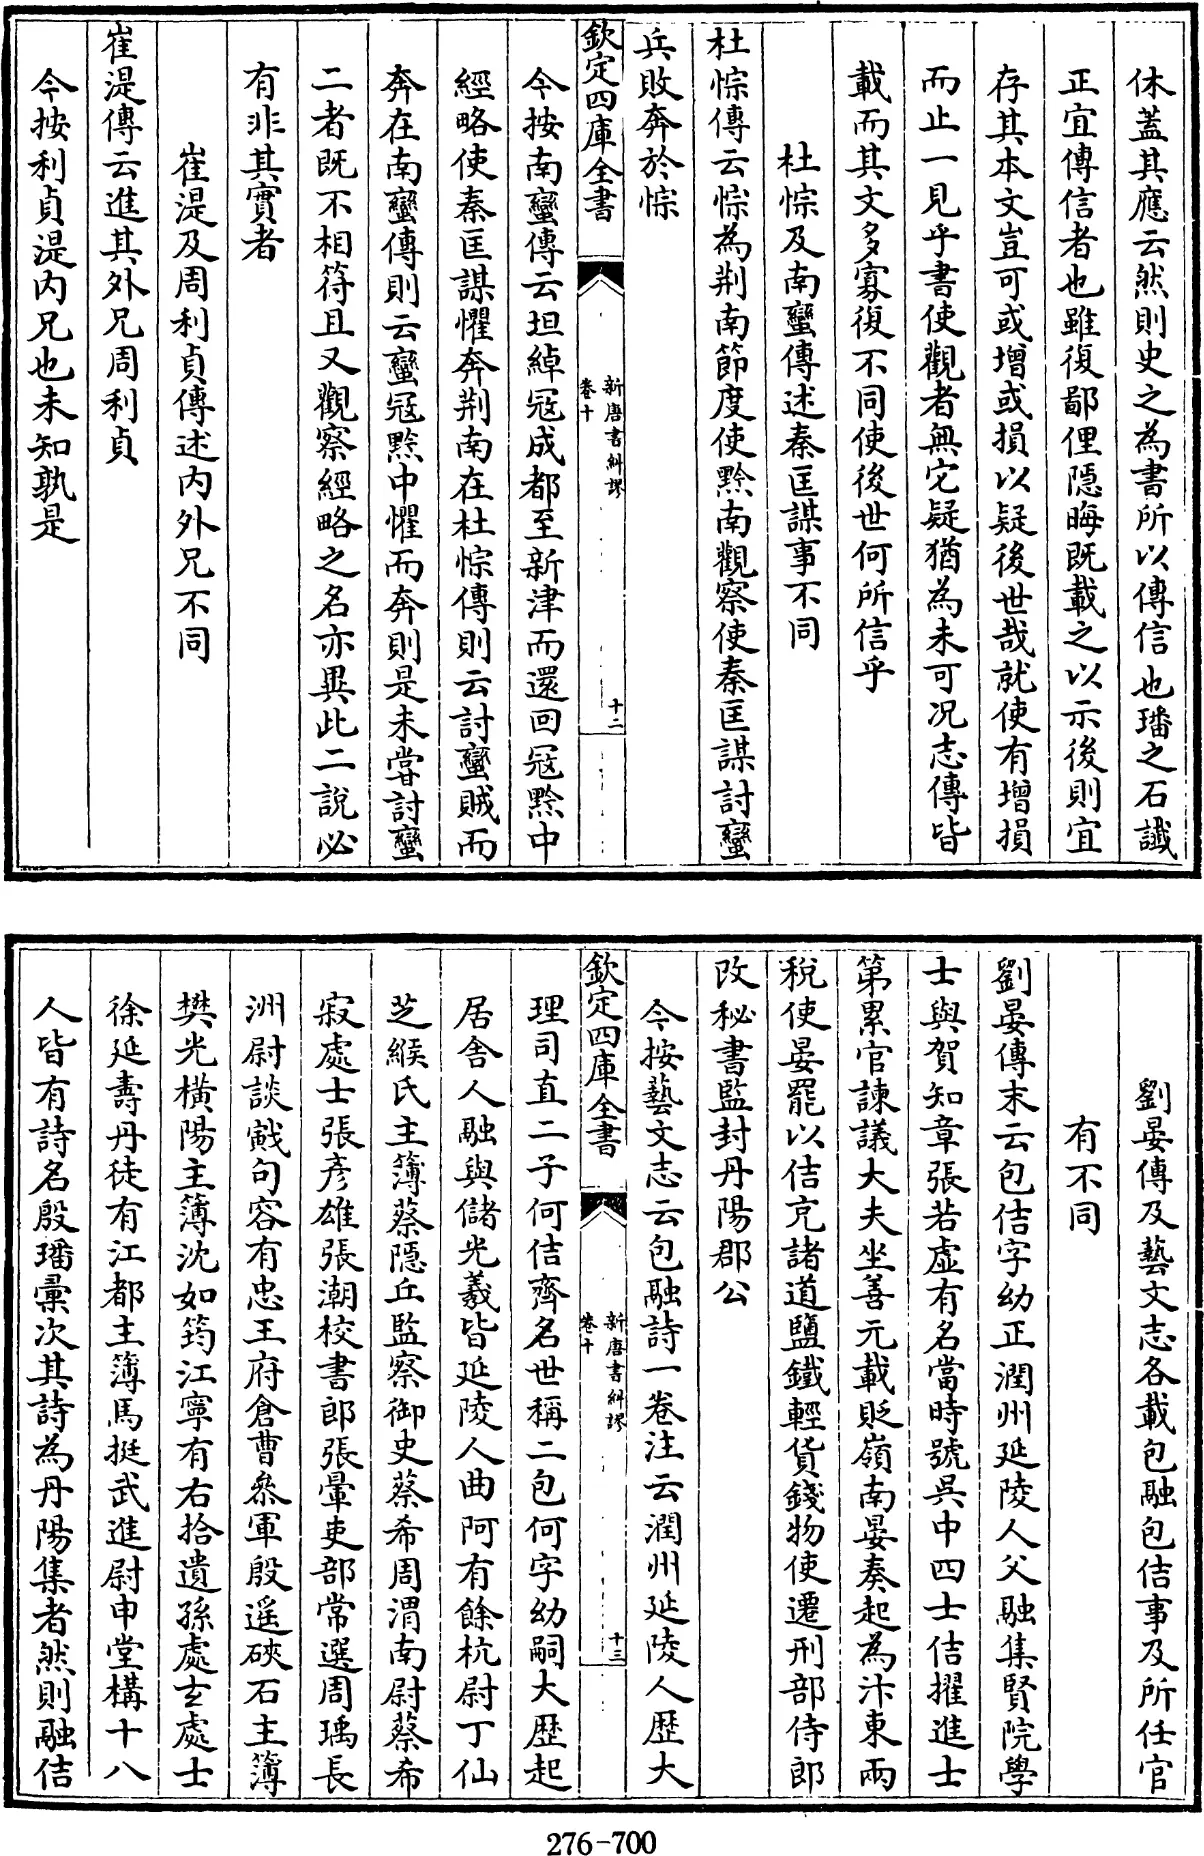 休蓋其應云然則史之為書所以傳信也璠之石讖
正宜傳信者也雖復鄙俚隱晦既載之以示後則宜
存其本文豈可或增或損以疑後世哉就使有增損
而止一見乎書使觀者無它疑猶為未可況志傳皆
載而其文多寡復不同使後世何所信乎
杜悰及南蠻傳述秦匡謀事不同
杜悰傳云悰為荆南節度使黔南觀察使秦匡謀討蠻
兵敗奔於悰
欽定四庫全書
新唐書糾謬
卷十
十二
今按南蠻傳云坦綽寇成都至新津而還回寇黔中
經略使秦匡謀懼奔荆南在杜悰傳則云討蠻賊而
奔在南蠻傳則云蠻寇黔中懼而奔則是未嘗討蠻
二者既不相符且又觀察經略之名亦異此二說必
有非其實者
崔湜及周利貞傳述內外兄不同
崔湜傳云進其外兄周利貞
今按利貞湜內兄也未知孰是
劉晏傳及藝文志各載包融包佶事及所任官
有不同
劉晏傳末云包佶字幼正潤州延陵人父融集賢院學
士與賀知章張若虛有名當時號吳中四士佶擢進士
第累官諫議大夫坐善元載貶嶺南晏奏起為汴東兩
稅使晏罷以佶充諸道鹽鐵輕貨錢物使遷刑部侍郎
改秘書監封丹陽郡公
今按藝文志云包融詩一卷注云潤州延陵人歷大
欽定四庫全書
新唐書糾謬
卷十
十三
理司直二子何佶齊名世稱二包何字幼嗣大歷起
居舍人融與儲光羲皆延陵人曲阿有餘杭尉丁仙
芝緱氏主簿蔡隱丘監察御史蔡希周渭南尉蔡希
寂處士張彥雄張潮校書郎張暈吏部常選周瑀長
洲尉談戭句容有忠王府倉曹參軍殷遥硤石主簿
樊光橫陽主簿沈如筠江寧有右拾遺孫處玄處士
徐延壽丹徒有江都主簿馬挺武進尉申堂構十八
人皆有詩名殷璠彙次其詩為丹陽集者然則融佶
276-700